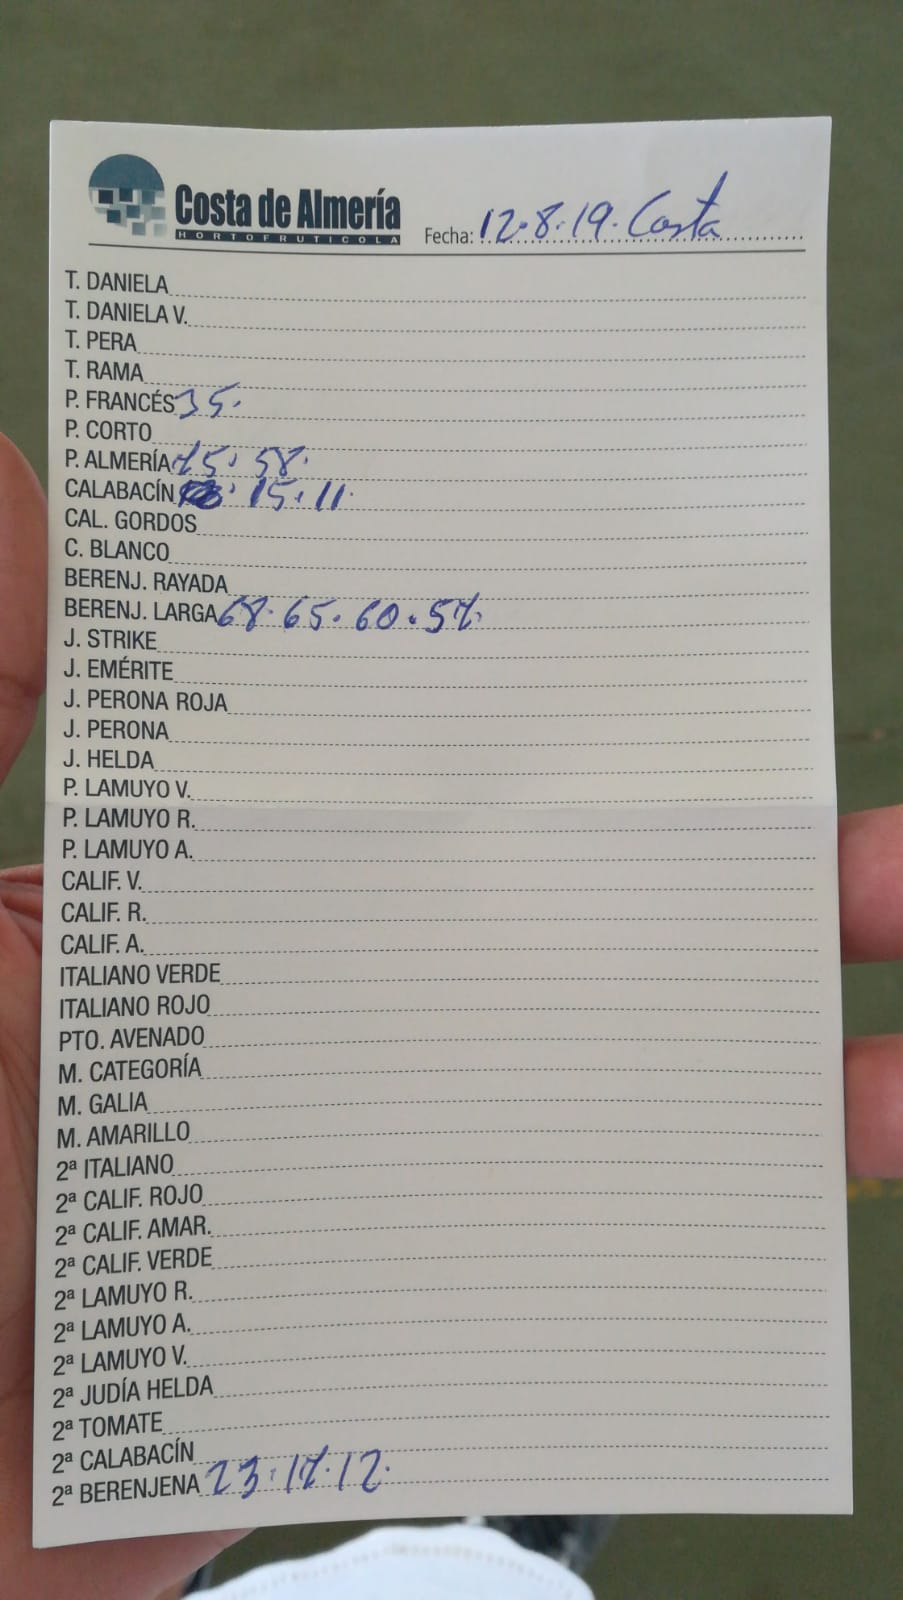 Costa de Almería
HORTOFRUTICOLA
Fecha: 12.8.19. Costa
T. DANIELA
T. DANIELA V.
T. PERA
T. RAMA
P. FRANCÉS 35.
P. CORTO
P. ALMERÍA 58.
CALABACÍN 15. 11.
CAL. GORDOS
C. BLANCO
BERENJ. RAYADA
BERENJ. LARGA 68. 65. 60. 57.
J. STRIKE
J. EMÉRITE
J. PERONA ROJA
J. PERONA
J. HELDA
P. LAMUYO V.
P. LAMUYO R.
P. LAMUYO A.
CALIF. V.
CALIF. R.
CALIF. A.
ITALIANO VERDE
ITALIANO ROJO
PTO. AVENADO
M. CATEGORÍA
M. GALIA
M. AMARILLO
2ª ITALIANO
2ª CALIF. ROJO
2ª CALIF. AMAR.
2ª CALIF. VERDE
2ª LAMUYO R.
2ª LAMUYO A.
2ª LAMUYO V.
2ª JUDÍA HELDA
2ª TOMATE
2ª CALABACÍN
2ª BERENJENA 23. 17. 12.